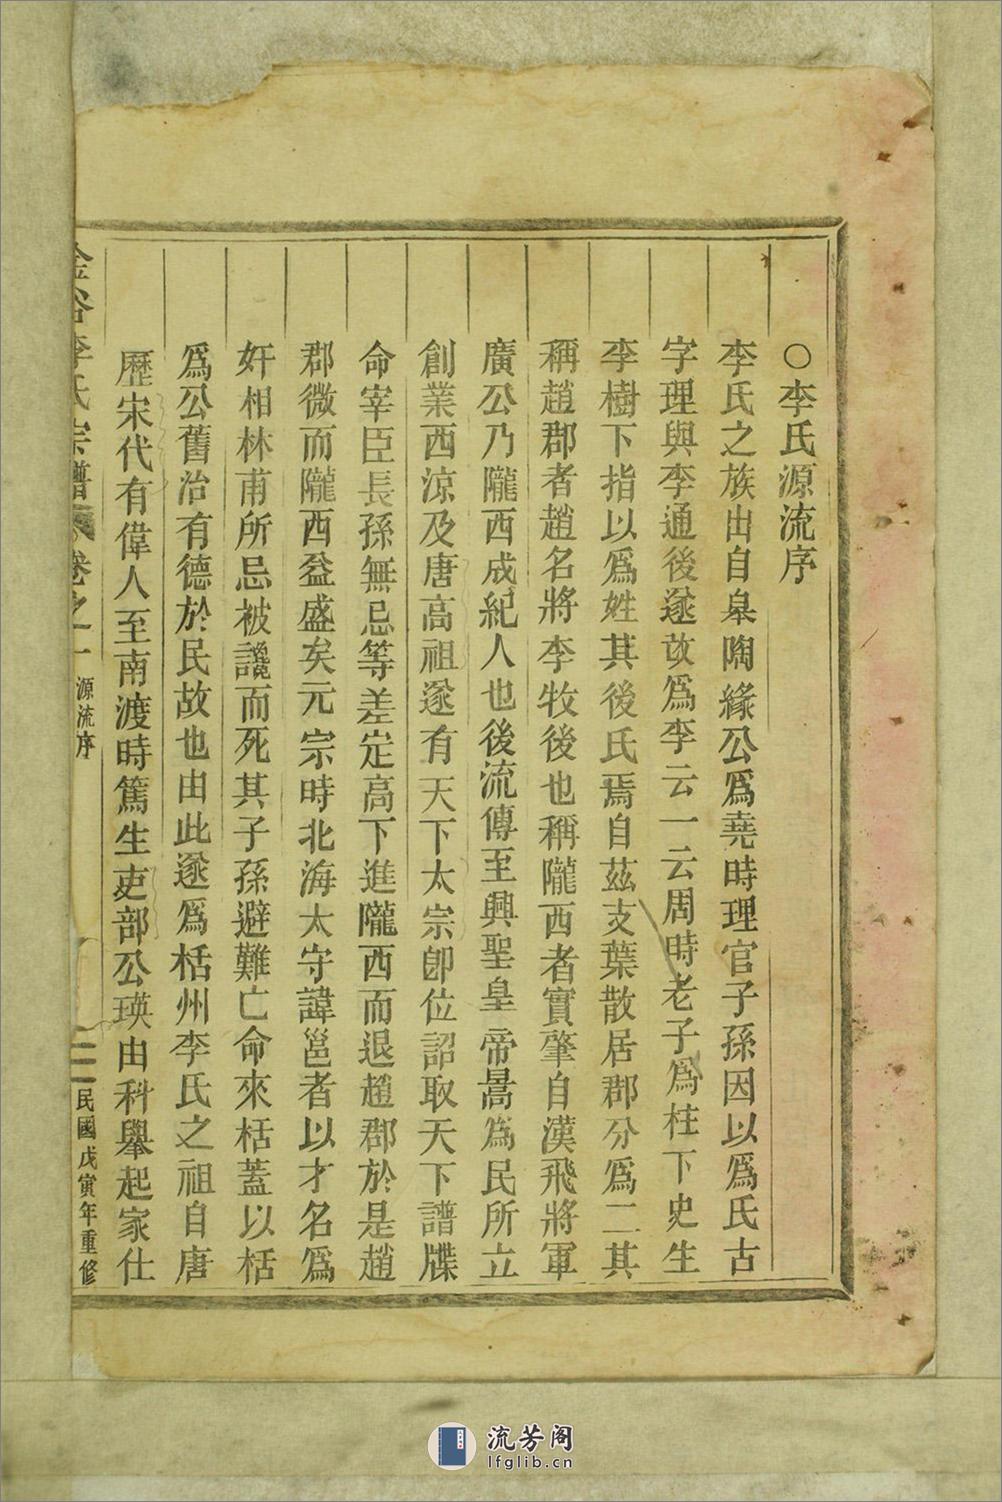 ○李氏源流序
李氏之族出自皋陶緣公爲堯時理官子孫因以爲氏古
字理與李通後遂改爲李云一云周時老子爲柱下史生
李樹下指以爲姓其後氏焉自茲支葉散居郡分爲二其
稱趙郡者趙名將李牧後也稱隴西者實肇自漢飛將軍
廣公乃隴西成紀人也後流傳至興聖皇帝暠爲民所立
創業西涼及唐高祖遂有天下太宗卽位詔取天下譜牒
命宰臣長孫無忌等差定高下進隴西而退趙郡於是趙
郡微而隴西益盛矣元宗時北海太守諱邕者以才名爲
奸相林甫所忌被讒而死其子孫避難亡命來栝蓋以栝
爲公舊治有德於民故也由此遂爲栝州李氏之祖自唐
歷宋代有偉人至南渡時篤生吏部公瑛由科舉起家仕
金谷李氏宗譜 卷之一 源流序 二 民國戊寅年重修
流芳阁
lfglib.cn